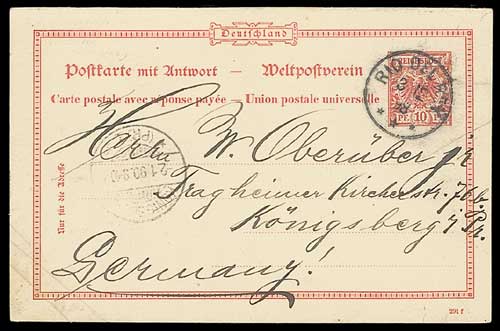 Deutschland
Postkarte mit Antwort — Weltpostverein
Carte postale avec réponse payée — Union postale universelle
Herrn W. Oberüber jr
Tragheimer Kirchenstr. 76b.
Königsberg i/Pr.
Germany!
Nur für die Adresse
10
291 f